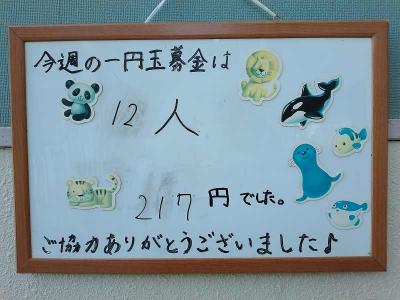 今週の一円玉募金は
12人
217円でした。
ご協力ありがとうございました♪